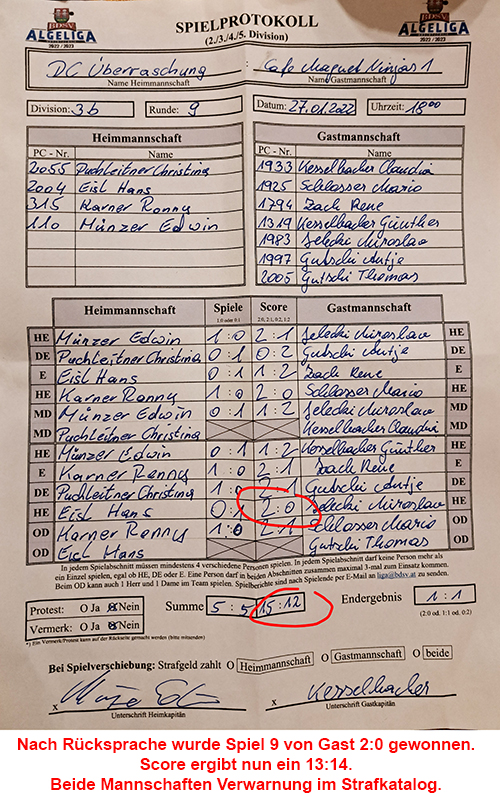 BDSV
ALGELIGA
2022/2023
SPIELPROTOKOLL
(2./3./4./5. Division)
BDSV
ALGELIGA
2022/2023
DC Überraschung
Cafe Magnet Ninjas 1
Name Heimmannschaft
Name Gastmannschaft
Division: 3b
Runde: 9
Datum: 27.01.2022
Uhrzeit: 18 00
Heimmannschaft
Gastmannschaft
PC - Nr. Name
PC - Nr. Name
2055 Puchleitner Christina
1933 Kesselbacher Claudia
2004 Eisl Hans
1925 Schlosser Mario
315 Karner Ronny
1794 Zach Rene
110 Münzer Edwin
1319 Kesselbacher Günther
1983 Jelecki Miroslav
1997 Gutschi Antje
2005 Gutschi Thomas
Heimmannschaft Spiele Score Gastmannschaft
1:0 oder 0:1 2:0, 2:1, 0:2, 1:2
HE Münzer Edwin 1:0 2:1 Jelecki Miroslav HE
DE Puchleitner Christina 0:1 0:2 Gutschi Antje DE
E Eisl Hans 0:1 1:2 Zach Rene E
HE Karner Ronny 1:0 2:0 Schlosser Mario HE
MD Münzer Edwin 0:1 1:2 Jelecki Miroslav MD
MD Puchleitner Christina Kesselbacher Claudia MD
HE Münzer Edwin 0:1 1:2 Kesselbacher Günther HE
E Karner Ronny 1:0 2:1 Zach Rene E
DE Puchleitner Christina 1:0 :1 Gutschi Antje DE
HE Eisl Hans 0:1 2:0 Jelecki Miroslav HE
OD Karner Ronny 1:0 2:1 Schlosser Mario OD
OD Eisl Hans Gutschi Thomas OD
In jedem Spielabschnitt müssen mindestens 4 verschiedene Personen spielen. In jedem Spielabschnitt darf keine Person mehr als
ein Einzel spielen, egal ob HE, DE oder E. Eine Person darf in beiden Abschnitten zusammen maximal 3-mal zum Einsatz kommen.
Beim OD kann auch 1 Herr und 1 Dame im Team spielen. Spielberichte sind nach Spielende per E-Mail an liga@bdsv.at zu senden.
Protest: O Ja O Nein
Summe 5:5 15:12
Endergebnis 1:1
Vermerk: O Ja O Nein
(2:0 od. 1:1 od. 0:2)
*) Ein Vermerk/Protest kann auf der Rückseite gemacht werden (bitte ankreuzen)
Bei Spielverschiebung: Strafgeld zahlt O Heimmannschaft O Gastmannschaft O beide
x
x Kesselbacher
Unterschrift Heimkapitän
Unterschrift Gastkapitän
Nach Rücksprache wurde Spiel 9 von Gast 2:0 gewonnen.
Score ergibt nun ein 13:14.
Beide Mannschaften Verwarnung im Strafkatalog.